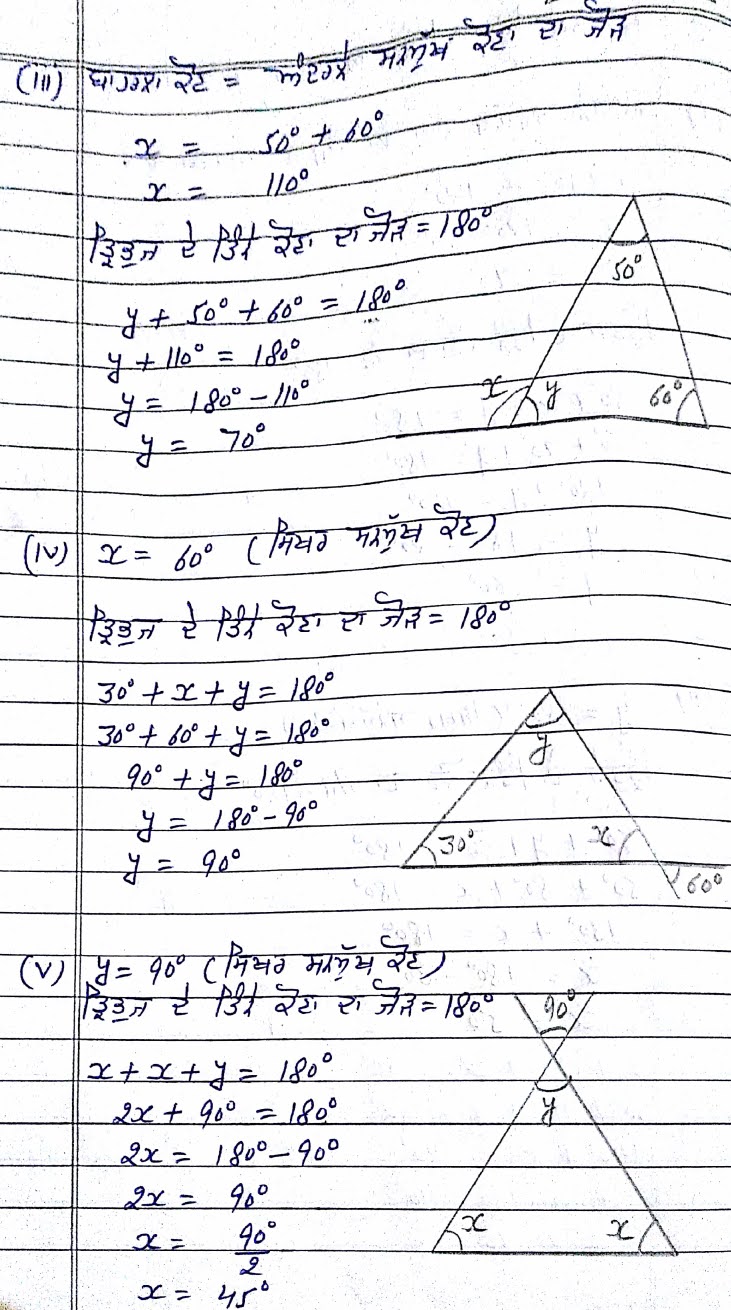 (iii) ਬਾਹਰਲਾ ਕੋਣ = ਅੰਦਰਲੇ ਸਨਮੁੱਖ ਕੋਣਾਂ ਦਾ ਜੋੜ
x = 50° + 60°
x = 110°
ਤ੍ਰਿਭੁਜ ਦੇ ਤਿੰਨੇ ਕੋਣਾਂ ਦਾ ਜੋੜ = 180°
y + 50° + 60° = 180°
y + 110° = 180°
y = 180° - 110°
y = 70°
50°
x
y
60°
(iv) x = 60° (ਸਿਖਰ ਸਨਮੁੱਖ ਕੋਣ)
ਤ੍ਰਿਭੁਜ ਦੇ ਤਿੰਨੇ ਕੋਣਾਂ ਦਾ ਜੋੜ = 180°
30° + x + y = 180°
30° + 60° + y = 180°
90° + y = 180°
y = 180° - 90°
y = 90°
y
30°
x
60°
(v) y = 90° (ਸਿਖਰ ਸਨਮੁੱਖ ਕੋਣ)
ਤ੍ਰਿਭੁਜ ਦੇ ਤਿੰਨੇ ਕੋਣਾਂ ਦਾ ਜੋੜ = 180°
x + x + y = 180°
2x + 90° = 180°
2x = 180° - 90°
2x = 90°
x = 90°/2
x = 45°
90°
y
x
x